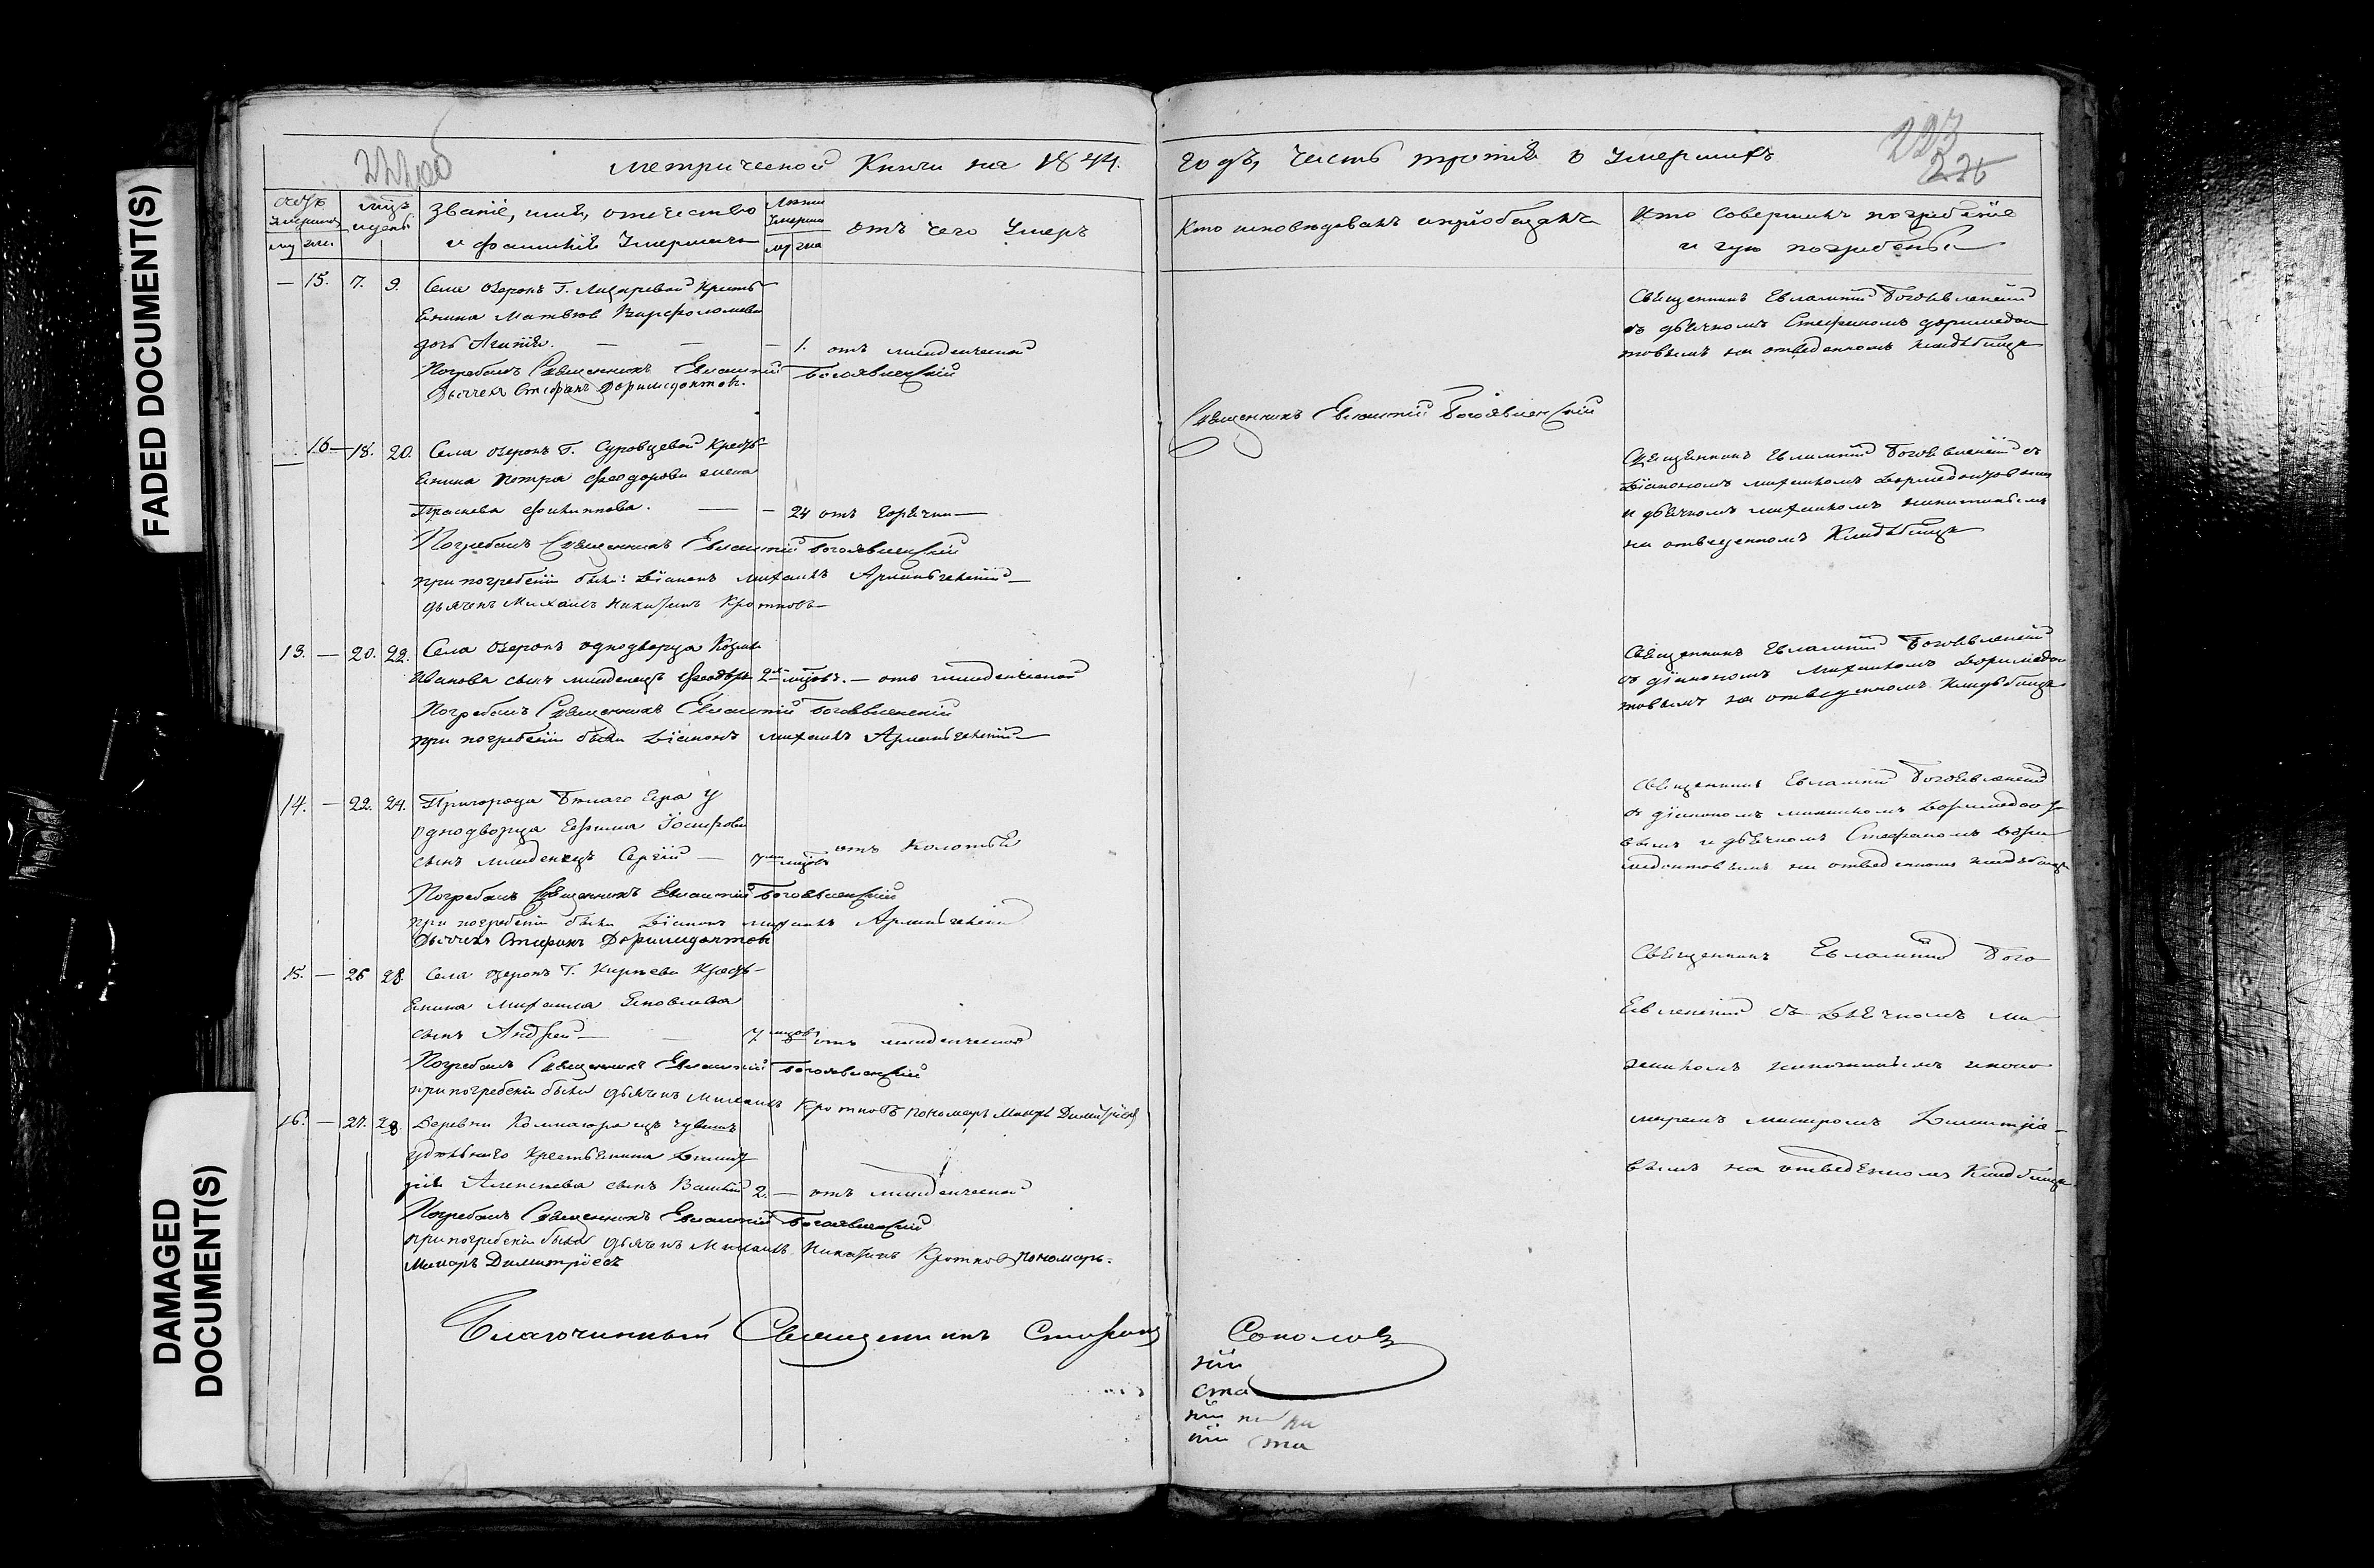 FADED DOCUMENT(S)
DAMAGED
DOCUMENT(S)
222об
Метрической Книги на 1844.
счетъ умершихъ
муж жен
мцъ и день
Званіе, имя, отечество
и фамилія умершаго
Лѣта умерша
му жен
отъ чего умеръ
15. 7. 9. Села озерокъ Г. Лазаревой Кресть
янина Матвѣя Варфоломеева
дочь Агапія. 1. отъ младенческой
Погребалъ Священникъ Евлампій Богоявленскій
Дьячекъ Стефанъ Доримедонтов.
16 18. 20. Села озерокъ Г. Суровцевой Кресть
янина Петра Феодорова жена
Параскева Филиппова. 24 отъ горячки
Погребалъ Священникъ Евлампій Богоявленскій
при погребеніи были: Діаконъ Михаилъ
дьячекъ Михаилъ Никитинъ Кротковъ
13. 20. 22. Села озерокъ однодворца Козмы
Иванова сынъ младенецъ Феодоръ 2 мцовъ. отъ младенческой
Погребалъ Священникъ Евлампій Богоявленскій
при погребеніи были Діаконъ Михаилъ
14. 22. 24. Пригорода Бѣлаго Яра у
однодворца Ефима Іосифова
сынъ младенецъ Сергій 7 мцовъ отъ
Погребалъ Священникъ Евлампій Богоявленскій
при погребеніи были Діаконъ Михаилъ
Дьячекъ Стефанъ Доримедонтов
15. 26 28 Села озерокъ Г. Кирѣева Кресть
янина Михаила Яковлева
сынъ Андрей 7 мцовъ отъ младенческой
Погребалъ Священникъ Евлампій Богоявленскій
при погребеніи были дьячекъ Михаилъ Кротковъ пономарь Макаръ Димитріевъ
16. 27. 28. Деревни изъ чувашъ
удѣльнаго крестьянина Димит
рія Алексѣева сынъ Василій 2. отъ младенческой
Погребалъ Священникъ Евлампій Богоявленскій
при погребеніи были дьячекъ Михаилъ Никитинъ Кротковъ пономарь
Макаръ Димитріевъ
Благочинный Священникъ Стефанъ
223
годъ, часть третія о умершихъ
Кто исповѣдывалъ и пріобщалъ
Кто совершалъ погребеніе
и гдѣ погребены
Священникъ Евлампій Богоявленскій
съ дьячкомъ Стефаномъ Доримедон
товымъ на отведенномъ кладбищѣ
Священникъ Евлампій Богоявленскій
Священникъ Евлампій Богоявленскій съ
Діакономъ Михаиломъ Доримедонтовымъ
и дьячкомъ Михаиломъ Никитинымъ
на отведенномъ Кладбищѣ
Священникъ Евлампій Богоявленскій
съ діакономъ Михаиломъ Доримедон
товымъ на отведенномъ кладбищѣ
Священникъ Евлампій Богоявленскій
съ діакономъ Михаиломъ Доримедонто
вымъ и дьячкомъ Стефаномъ Дори
медонтовымъ на отведенномъ кладбищѣ
Священникъ Евлампій Бого
явленскій съ Дьячкомъ Ми
хаиломъ Никитинымъ и поно
маремъ Макаромъ Димитріе
вымъ на отведенномъ Кладбищѣ
Соколовъ
кій
ста